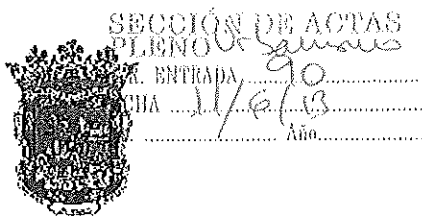 SECCIÓN DE ACTAS
PLENO
R. ENTRADA 90
CHA 11/6/13
Año